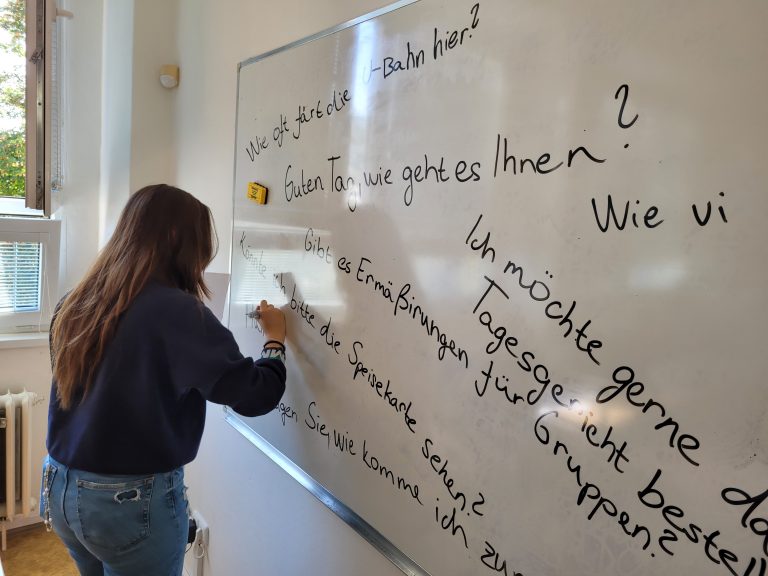 Wie oft färt die U-Bahn hier?
Guten Tag, wie geht es Ihnen?
Wie vi
Ich möchte gerne da
Tagesgericht bestell
Gibt es Ermäßirungen für Gruppen?
Könnte ich bitte die Speisekarte sehen?
gen Sie, wie komme ich zu